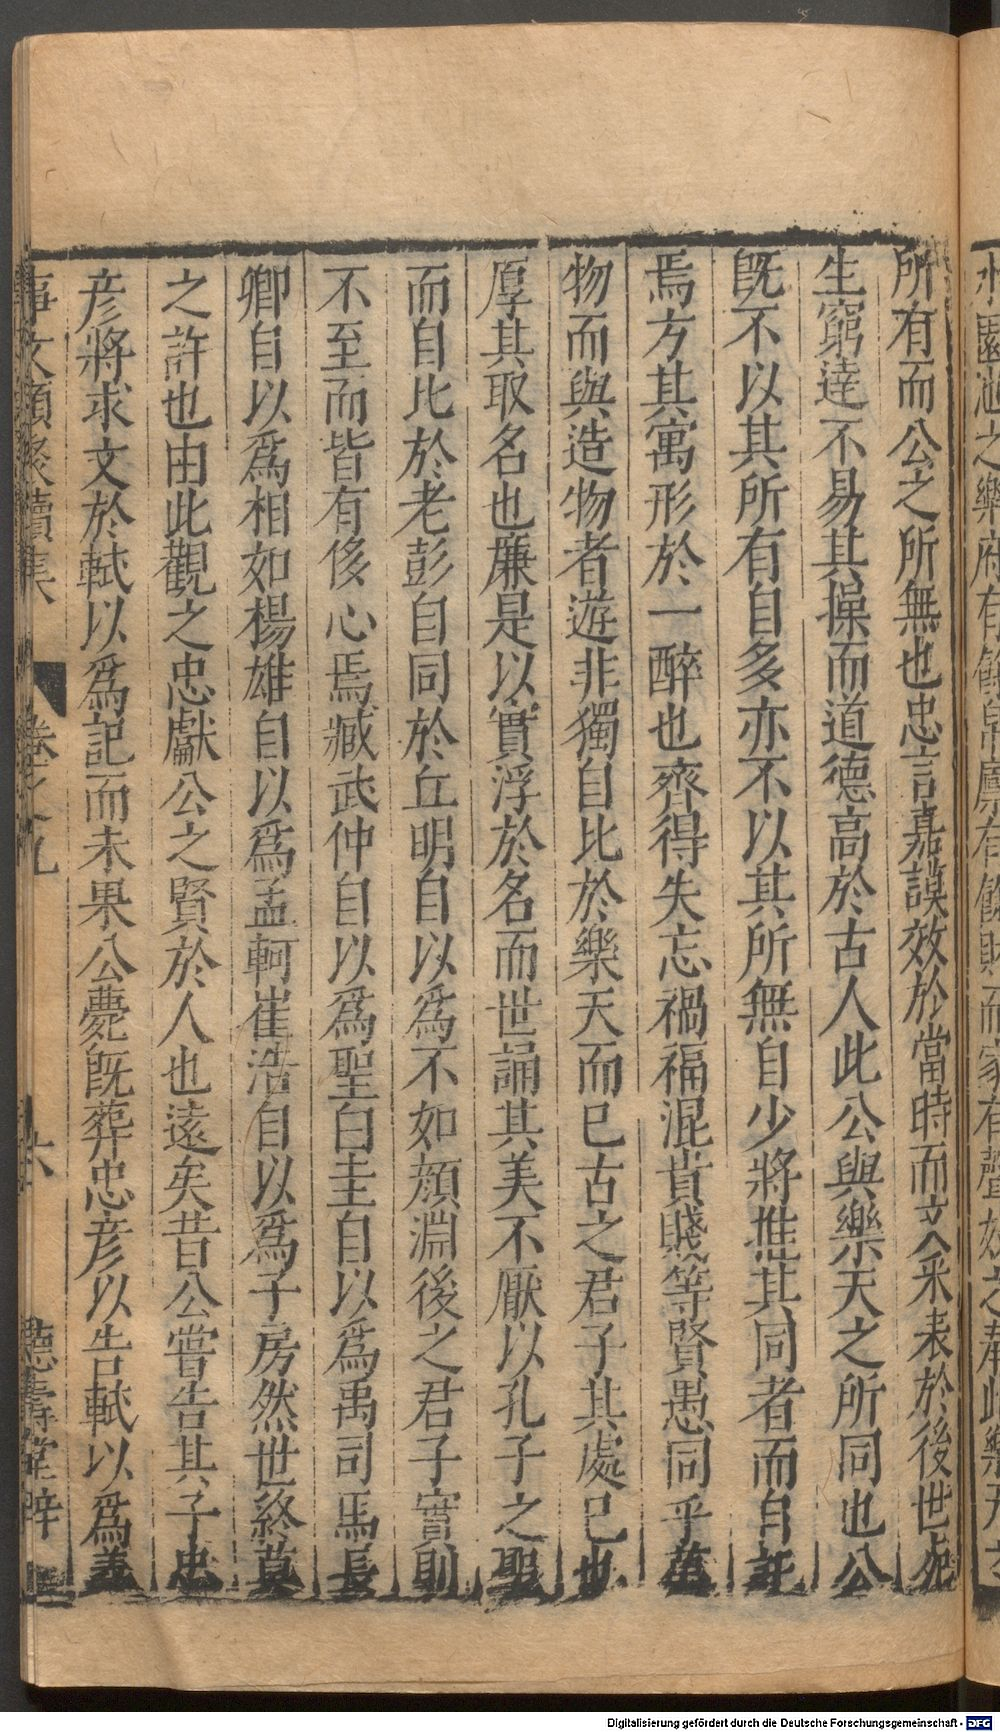 所有而公之所無也忠言嘉謨效於當時而文采表於後世死
生窮達不易其操而道德高於古人此公與樂天之所同也公
旣不以其所有自多亦不以其所無自少將推其同者而自託
焉方其寓形於一醉也齊得失忘禍福混貴賤等賢愚同乎萬
物而與造物者遊非獨自比於樂天而已古之君子其處已也
厚其取名也廉是以實浮於名而世誦其美不厭以孔子之聖
而自比於老彭自同於丘明自以爲不如顏淵後之君子實則
不至而皆有侈心焉臧武仲自以爲聖白圭自以爲禹司馬長
卿自以爲相如楊雄自以爲孟軻崔浩自以爲子房然世終莫
之許也由此觀之忠獻公之賢於人也遠矣昔公嘗告其子忠
彥將求文於軾以爲記而未果公薨旣葬忠彥以告軾以爲義
事文類聚續集
卷之九
六
德壽堂梓
Digitalisierung gefördert durch die Deutsche Forschungsgemeinschaft - DFG